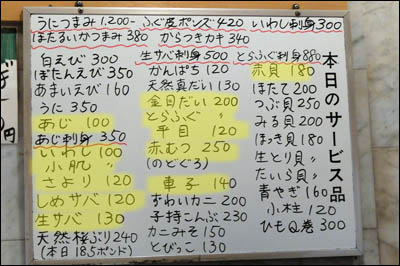 うにつまみ 1,200- ふぐ皮ポンズ 420 いわし刺身 300
ほたるいかつまみ 380 からつきカキ 340
本日のサービス品
白えび 300
ぼたんえび 350
あまいえび 160
うに 350
あじ 100
あじ刺身 350
いわし 100
小肌 〃
さより 120
しめサバ 120
生サバ 130
天然桜ぶり 240
(本日 18.5ポンド)
生サバ刺身 500 とらふぐ刺身 880
かんぱち 120
天然真だい 130
金目だい 200
とらふぐ 〃
平目 120
赤むつ 250
(のどぐろ)
車子 140
ずわいカニ 200
子持こんぶ 230
カニみそ 150
とびっこ 130
赤貝 180
ほたて 200
つぶ貝 250
みる貝 200
ほっき貝 180
生とり貝 〃
たいら貝 〃
青やぎ 160
小柱 120
ひもQ巻 300